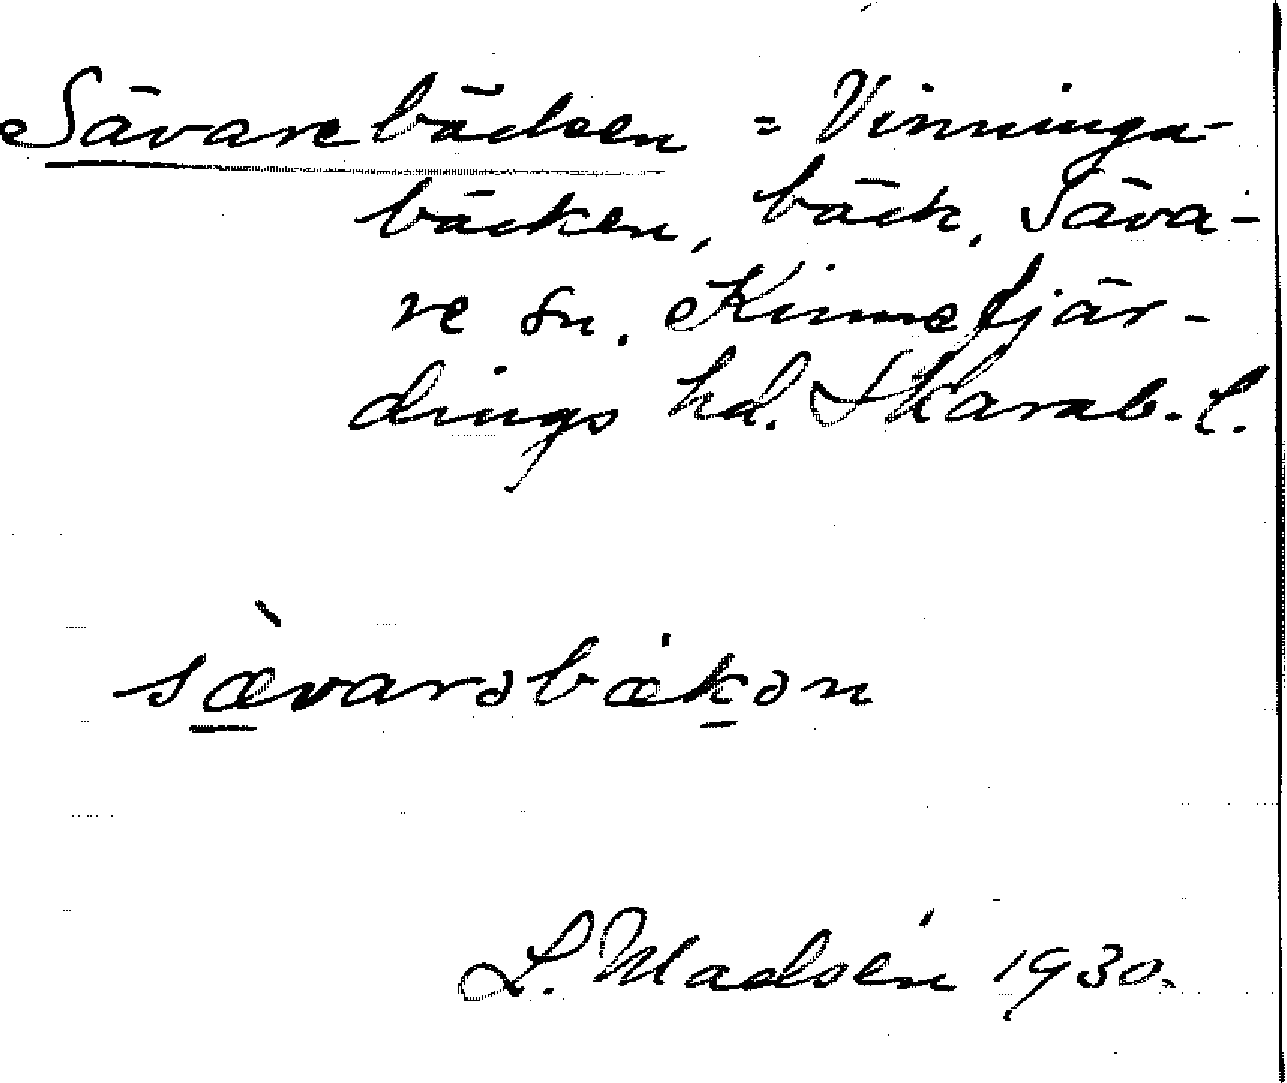 Sävarebäcken = Vinninga-
bäcken, bäck, Säva-
re sn. Kinnefjär-
dings hd. Skarab. l.
sæ̀varəbækən
L. Madsén 1930.